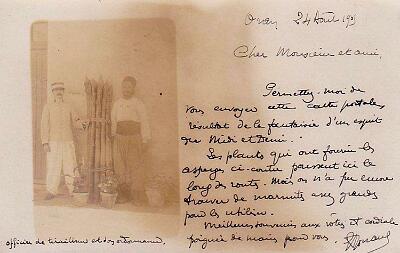 Oran 24 Août
Cher Monsieur et ami,
Permettez-moi de
vous envoyer cette carte postale
résultat de la fantaisie d'un esprit
du Midi et Demi.
Les plants qui ont fourni les
asperges ci-contre poussent ici le
long des routes. Mais on n'a pu encore
trouver de marmites assez grandes
pour les utiliser.
Meilleurs souvenirs aux vôtres et cordiale
poignée de mains pour vous.
officier de tirailleurs et son ordonnance